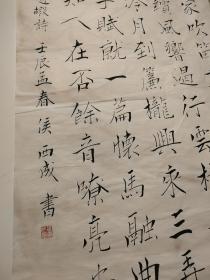 家吹
續風響遏行雲橫
冷月到簾櫳興來三弄
賦就一篇懷馬融曲
人在否餘音嘹亮
嘏詩壬辰孟春侯西成書